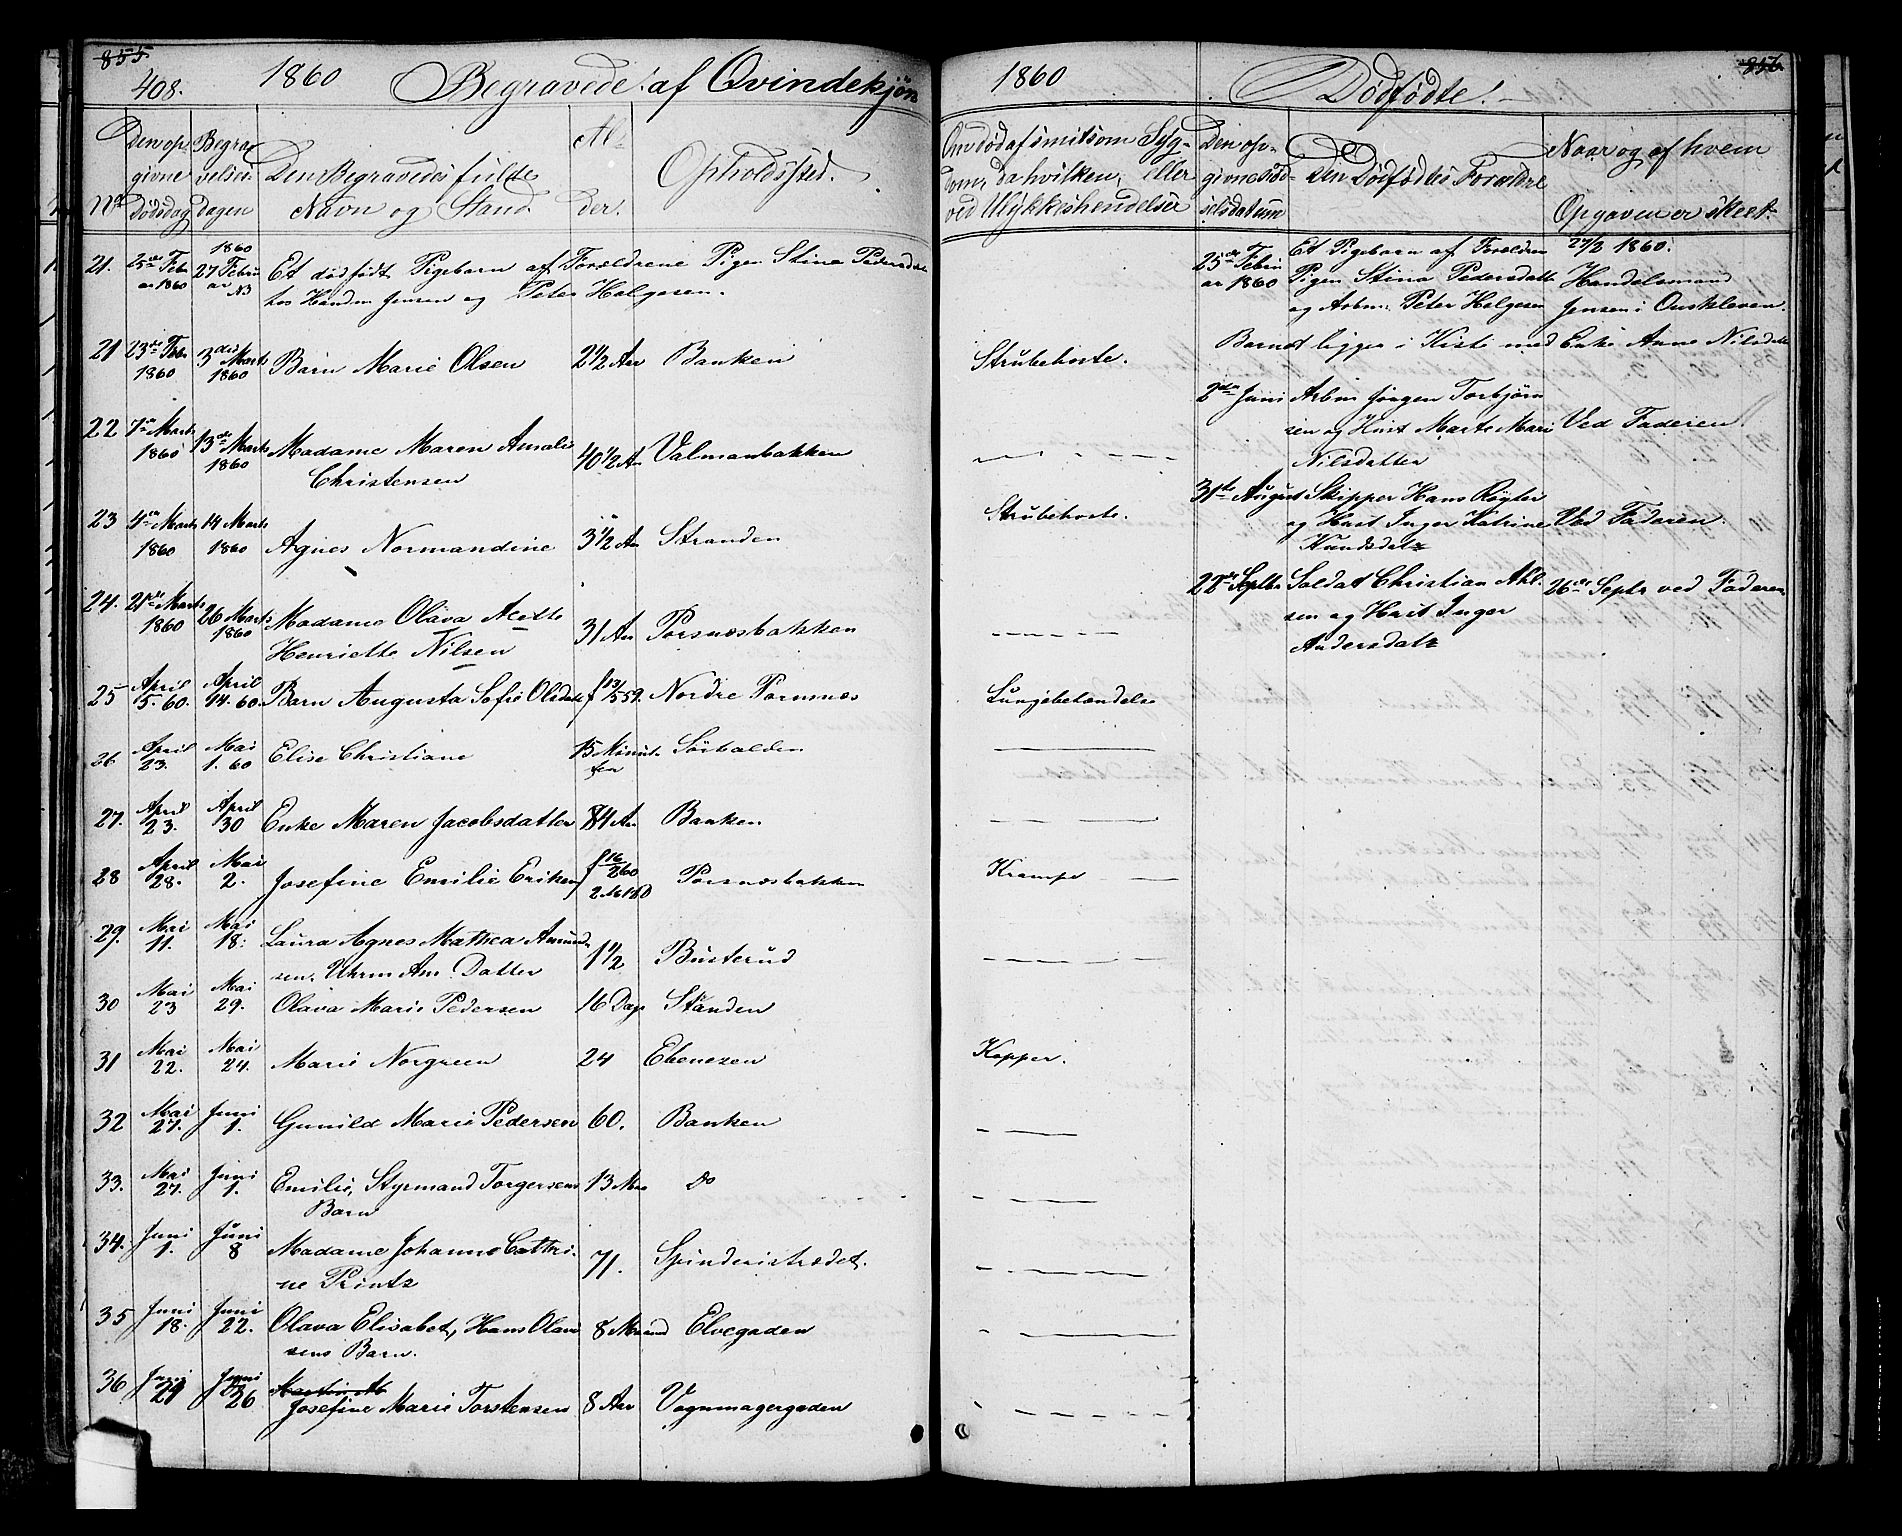 855
408. 1860 Begravede af Qvindekjøn
No Den opgivne Dødsdag Begravelses dagen Den Begravedes fulde Navn og Stand Alder. Opholdssted.
21. 25de Febr ar 1860 1860 27 Februar N3 Et dødfødt Pigebarn af Forældrene Pigen Stina Pedersdatter
hos Handm Jensen og Peter Helgesen.
21 23de Febr 1860 3die Marts 1860 Barn Marie Olsen 2 1/2 Aar Banken
22 7de Marts 1860 13de Marts 1860 Madame Maren Amalie 40 1/2 Aar Valmanbakken
Christensen
23 4de Marts 1860 14 Marts 1860 Agnes Normandine 3 1/2 Aar Stranden
24. 21de Marts 1860 26 Marts 1860 Madame Olava Mette 31 Aar Porsnesbakken
Henriette Nilsen
25 April 5. 60. April 14. 60. Barn Augusta Sofie Olsdat f 13/5 59. Nordre Porsnæs
26 April 23. Mai 1. 60 Elise Christiane 15 Minutter Sörhalden
27. April 23. April 30 Enke Maren Jacobsdatter 84 Aar Banken
28 April 28. Mai 2. Josefine Emilie Eriksen f 16/2 60 Porsnesbakken
29. Mai 11. Mai 18. Laura Agnes Mathea Amund- 1 1/2 Busterud
sen. Uhrm Am. Datter
30 Mai 23 Mai 29. Olava Marie Pedersen 16 Dage Standen
31 Mai 22. Mai 24. Marie Norgreen 24 Ebenezen
32 Mai 27. Juni 1. Gunild Marie Pedersen 60. Banken
33. Mai 27. Juni 1. Emilie, Styrmand Torgersens 13 Mnr Do
Barn
34. Juni 1. Juni 8 Madame Johanne Cathri- 71. Spinderistrædet.
ne Printz
35 Juni 18. Juni 22. Olava Elisabet, Hans Olau 8 Maaned Elvegaden
sens Barn.
36 Juni 21 Juni 26 Josefine Marie Torstensen 8 Aar Vognmagergaden
856
1860 Dødfødte.
Om død af smitsom Syg-
dom, da hvilken, eller
ved Ulykkeshendelser
Den op-
givne Fød-
selsdatum
Den Dødfødtes Forældre
Naar og af hvem
Opgaven er skeet.
25de Febru ar 1860 Et Pigebarn af Forældre 27/2 1860.
Pigen Stina Pedersdatt Handelsmand
og Arbm. Peter Helgesen Jensen i Ouskleven.
Barnet ligger i Kiste med Enke Anne Nilsdatt
Strubehoste.
2den Juni Arbm Jörgen Torbjørn
sen og Hust Marte Mari Ved Faderen
Nilsdatter
31te August Skipper Hans Røgler
Strubehoste. og Hust Inger Katrine Ved Faderen.
Knudsdatr
22de Septbr Soldat Christian Ahl- 26de Septr ved Faderen
sen og Hust Inger
Andersdatr
Lungebetændelse
Krampe
Kopper.